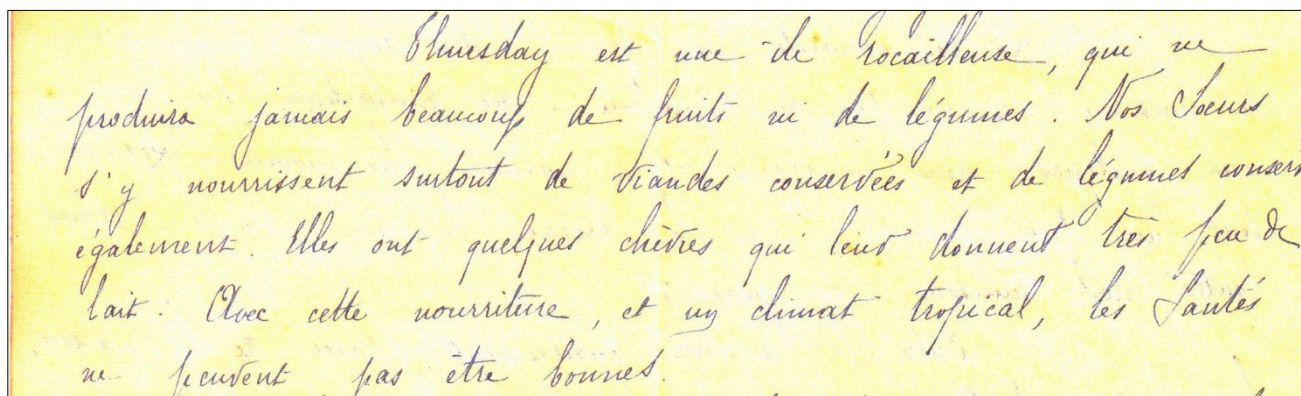 Thursday est une île rocailleuse, qui ne
produira jamais beaucoup de fruits ni de légumes. Nos Soeurs
s'y nourrissent surtout de viandes conservées et de légumes conserv
également. Elles ont quelques chèvres qui leur donnent très peu de
lait. Avec cette nourriture, et un climat tropical, les Santés
ne peuvent pas être bonnes.